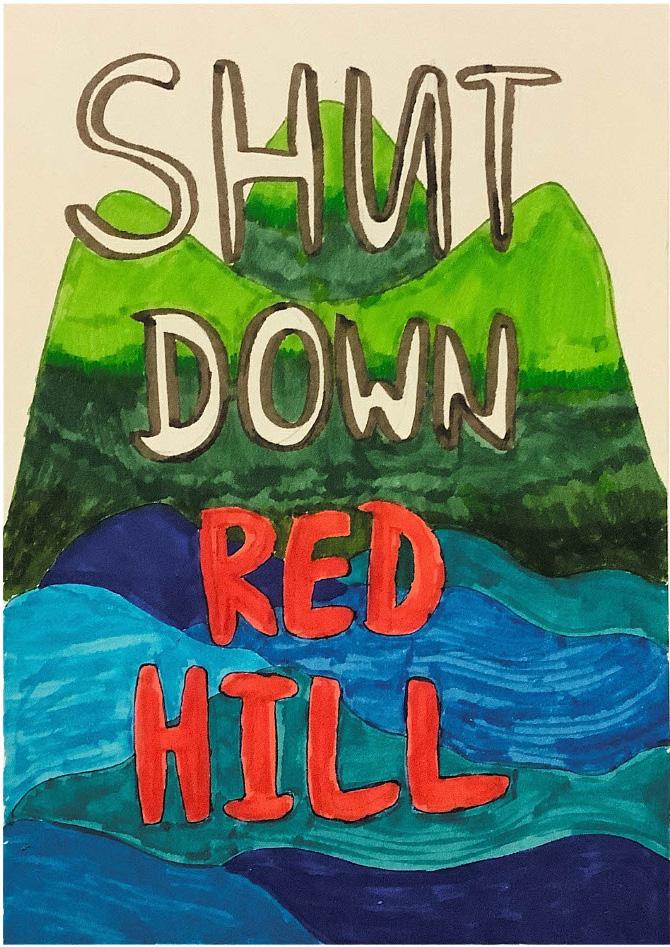 SHUT
DOWN
RED
HILL